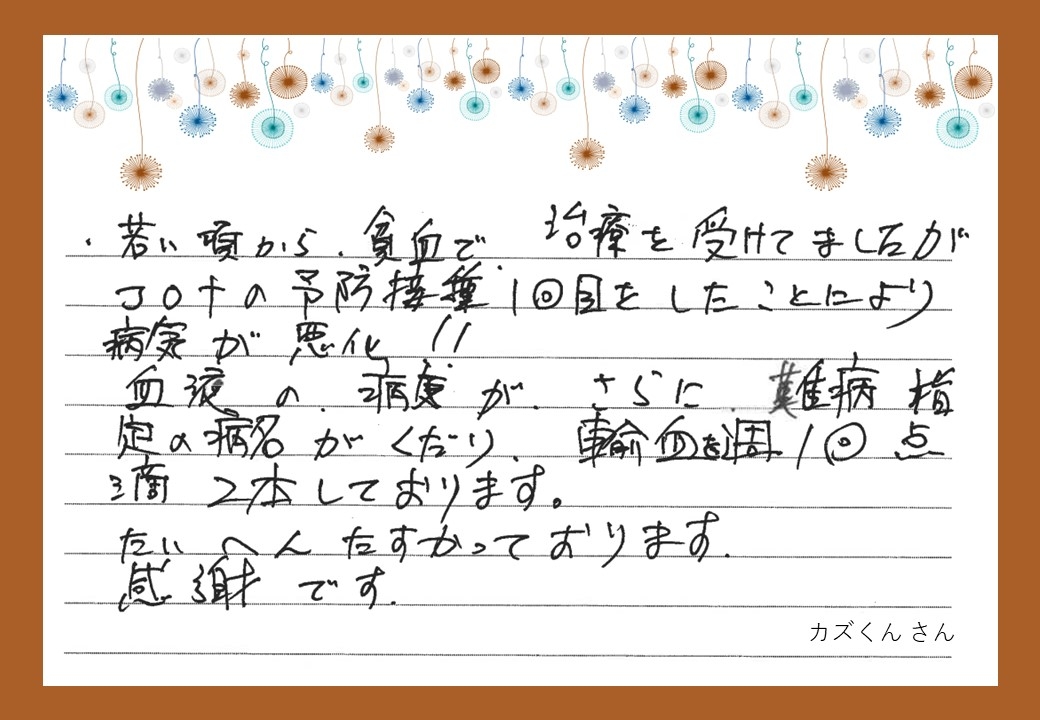 ・若い頃から、貧血で、治療を受けてましたが
コロナの予防接種1回目をしたことにより
病気が悪化!!
血液の、病魔が、さらに、難病指
定の病名がくだり、輸血を週1回点
滴2本しております。
たいへんたすかっております。
感謝です。
カズくん さん